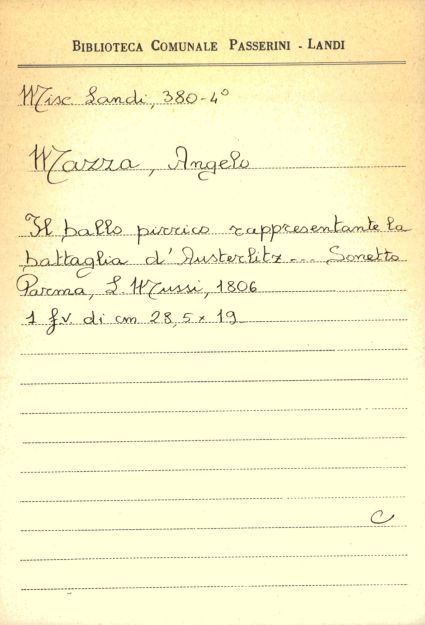 BIBLIOTECA COMUNALE PASSERINI - LANDI
Misc Landi, 380-4°
Mazza, Angelo
Il ballo pirrico rappresentante la
battaglia d'Austerlitz... Sonetto
Parma, L. Mussi, 1806
1 f.v. di cm 28,5 x 19
C